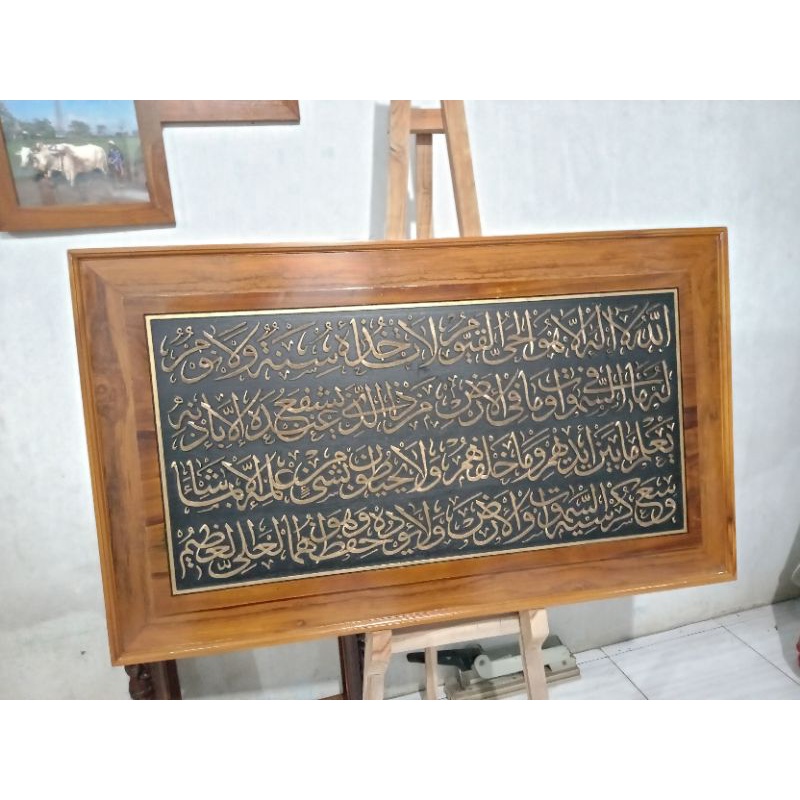 الله لا اله الا هو الحي القيوم لا تاخذه سنة ولا نوم
له ما في السموات وما في الارض من ذا الذي يشفع عنده الا باذنه
يعلم ما بين ايديهم وما خلفهم ولا يحيطون بشيء من علمه الا بما شاء
وسع كرسيه السموت والارض ولا يؤده حفظهما وهو العلي العظيم